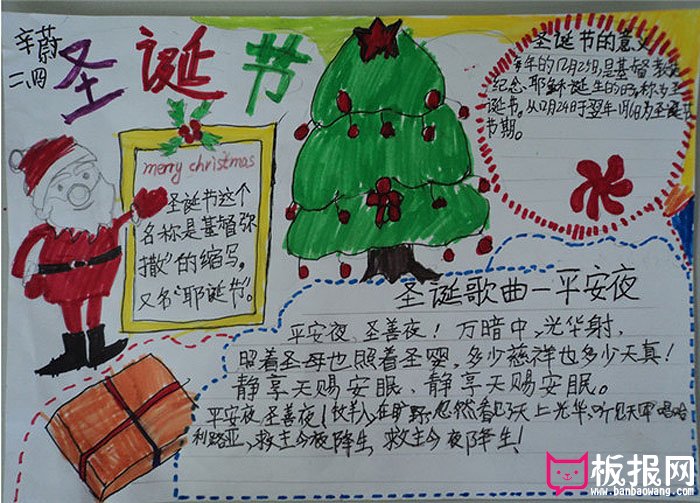 辛蔚
二.四
圣诞节
merry christmas
圣诞节这个
名称是基督弥
撒”的缩写，
又名“耶诞节”。
圣诞节的意义
年的12月25日,是基督教
纪念、耶稣诞生的日,称为圣
诞节。从12月24日于翌年1月6日为圣诞节
节期。
圣诞歌曲一平安夜
平安夜、圣善夜！万暗中，光华射，
照着圣母也照着圣婴，多少慈祥也多少天真！
静享天赐安眠、静享天赐安眠。
平安夜,圣善夜！牧羊人,在旷野,忽然看见了天上光华,听见天军唱哈
利路亚,救主今夜降生,救主今夜降生！
板报网
www.banbaowang.com